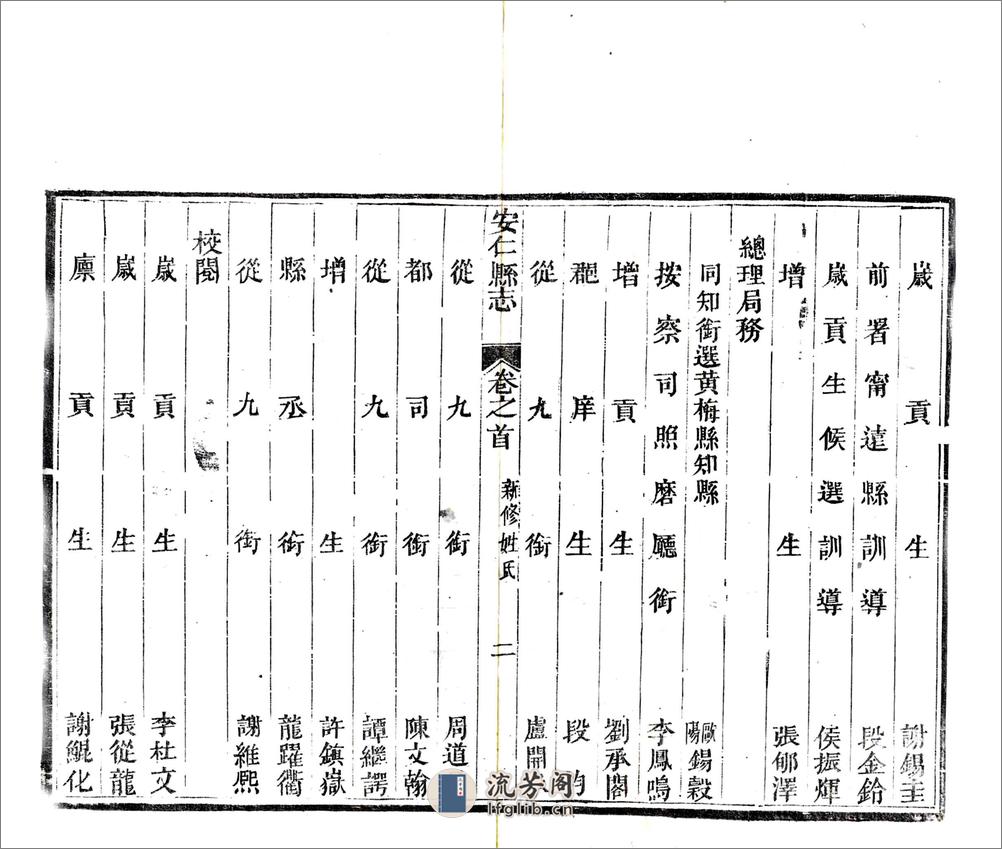 歲貢生 謝錫圭
前署甯遠縣訓導 段金鈴
歲貢生候選訓導 侯振煇
增生 張郁澤
總理局務
同知銜選黃梅縣知縣 歐陽錫穀
按察司照磨廳銜 李鳳鳴
增貢生 劉承閣
郡庠生 段
從九銜 盧開
安仁縣志 卷之首 新修姓氏 二
從九銜 周道
都司銜 陳文翰
從九銜 譚繼諤
增生 許鎮嶽
縣丞銜 龍躍衢
從九銜 謝維熙
校閱
歲貢生 李杜文
歲貢生 張從龍
廩貢生 謝鯤化
流芳阁
lfglib.cn